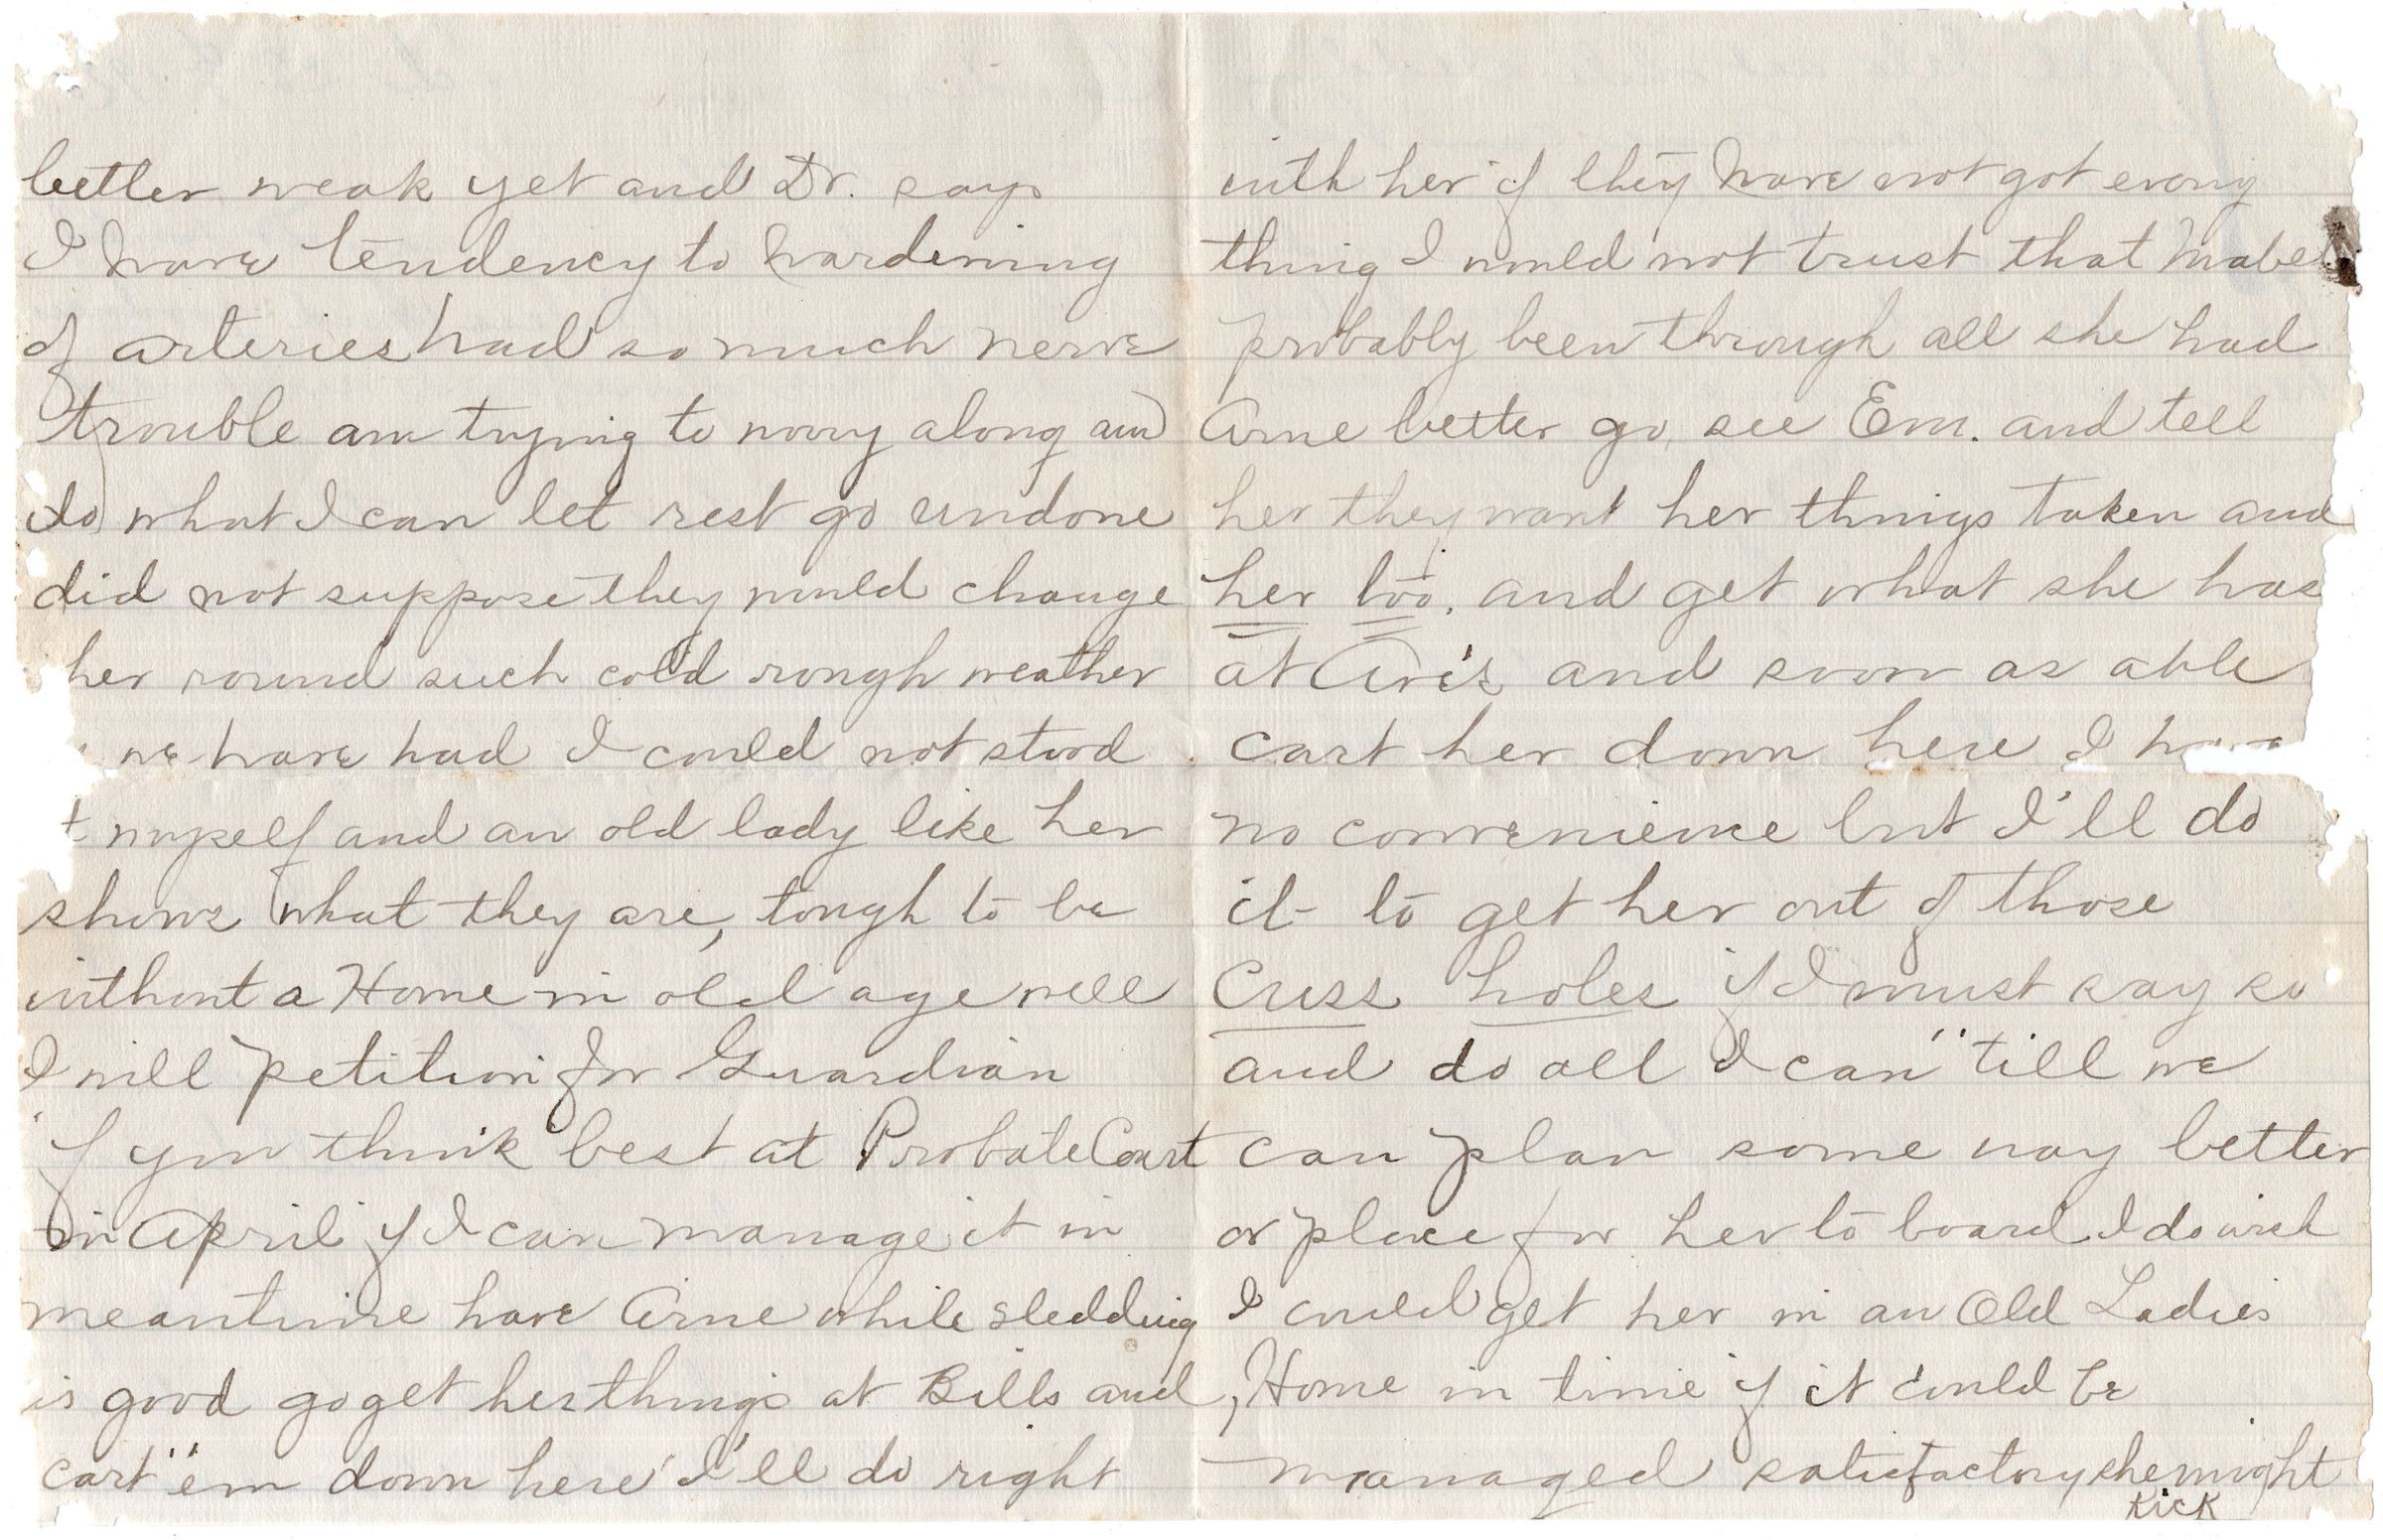 better weak yet and Dr. says
I have tendency to hardening
of arteries had so much nerve
trouble am trying to worry along and
do what I can let rest go undone
did not suppose they would change
her round such cold rough weather
we have had I could not stood
t myself and an old lady like her
shows what they are, tough to be
without a Home in old age well
I will petition for Guardian
if you think best at Probate Court
in April if I can manage it in
meantime have Arne while sledding
is good go get her things at Bills and
cart "em down here I'll do right
with her if they have not got every
thing I would not trust that Mabel
probably been through all she had
Arne better go see Em. and tell
her they want her things taken and
her too. and get what she has
at Avis and soon as able
cart her down here I have
no convenience but I'll do
it to get her out of those
Cuss holes if I must say so
and do all I can "till we
can plan some way better
or place for her to board I do wish
I could get her in an Old Ladies
Home in time if it could be
managed satisfactory she might
kick